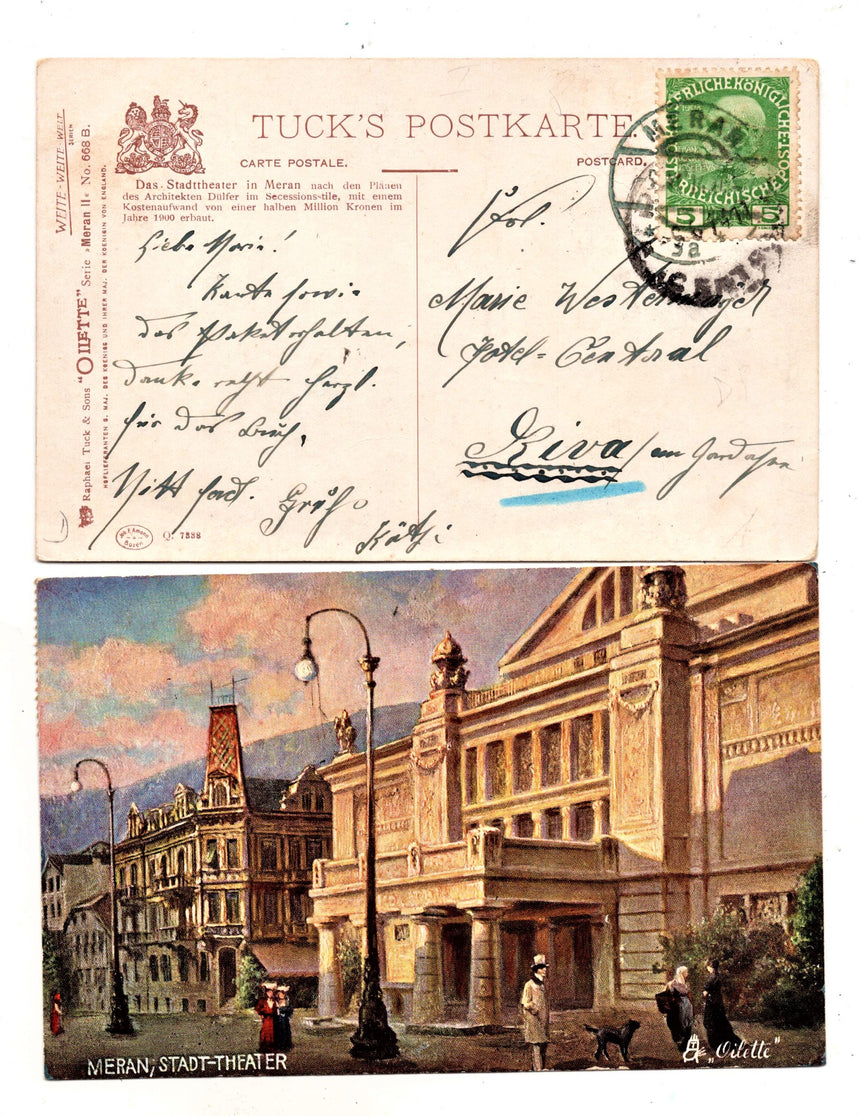 WEITE-WEITE-WELT
SERIEN
Raphael Tuck & Sons "OILETTE" Serie »Meran II« No. 668 B.
HOFLIEFERANTEN S. MAJ. DES KOENIGS UND IHRER MAJ. DER KOENIGIN VON ENGLAND.
TUCK'S POSTKARTE.
CARTE POSTALE. POSTCARD.
Das Stadttheater in Meran nach den Plänen
des Architekten Dülfer im Secessions-stile, mit einem
Kostenaufwand von einer halben Million Kronen im
Jahre 1900 erbaut.
Liebe Marie!
Karte sowie
das Paket erhalten,
danke recht herzl.
für das Buch,
Mitt Gruß
Käthi
Joh. F. Amonn
Bozen
Q. 7338
5 5
MERAN
9a
Marie
Hotel-Central
Riva/am Gardasee
MERAN, STADT-THEATER
„Oilette"